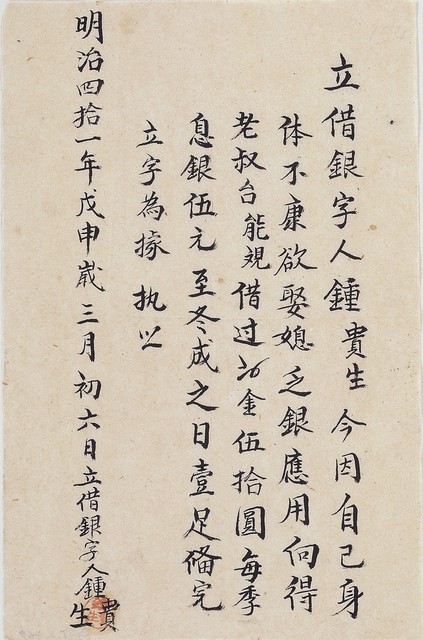 立借銀字人鍾貴生今因自己身
体不康欲娶媳乏銀應用向得
老叔台能覌借过金伍拾圓每季
息銀伍元至冬成之日壹足俻完
立字為據执以
明治四拾一年戊申歲三月初六日立借銀字人鍾貴生